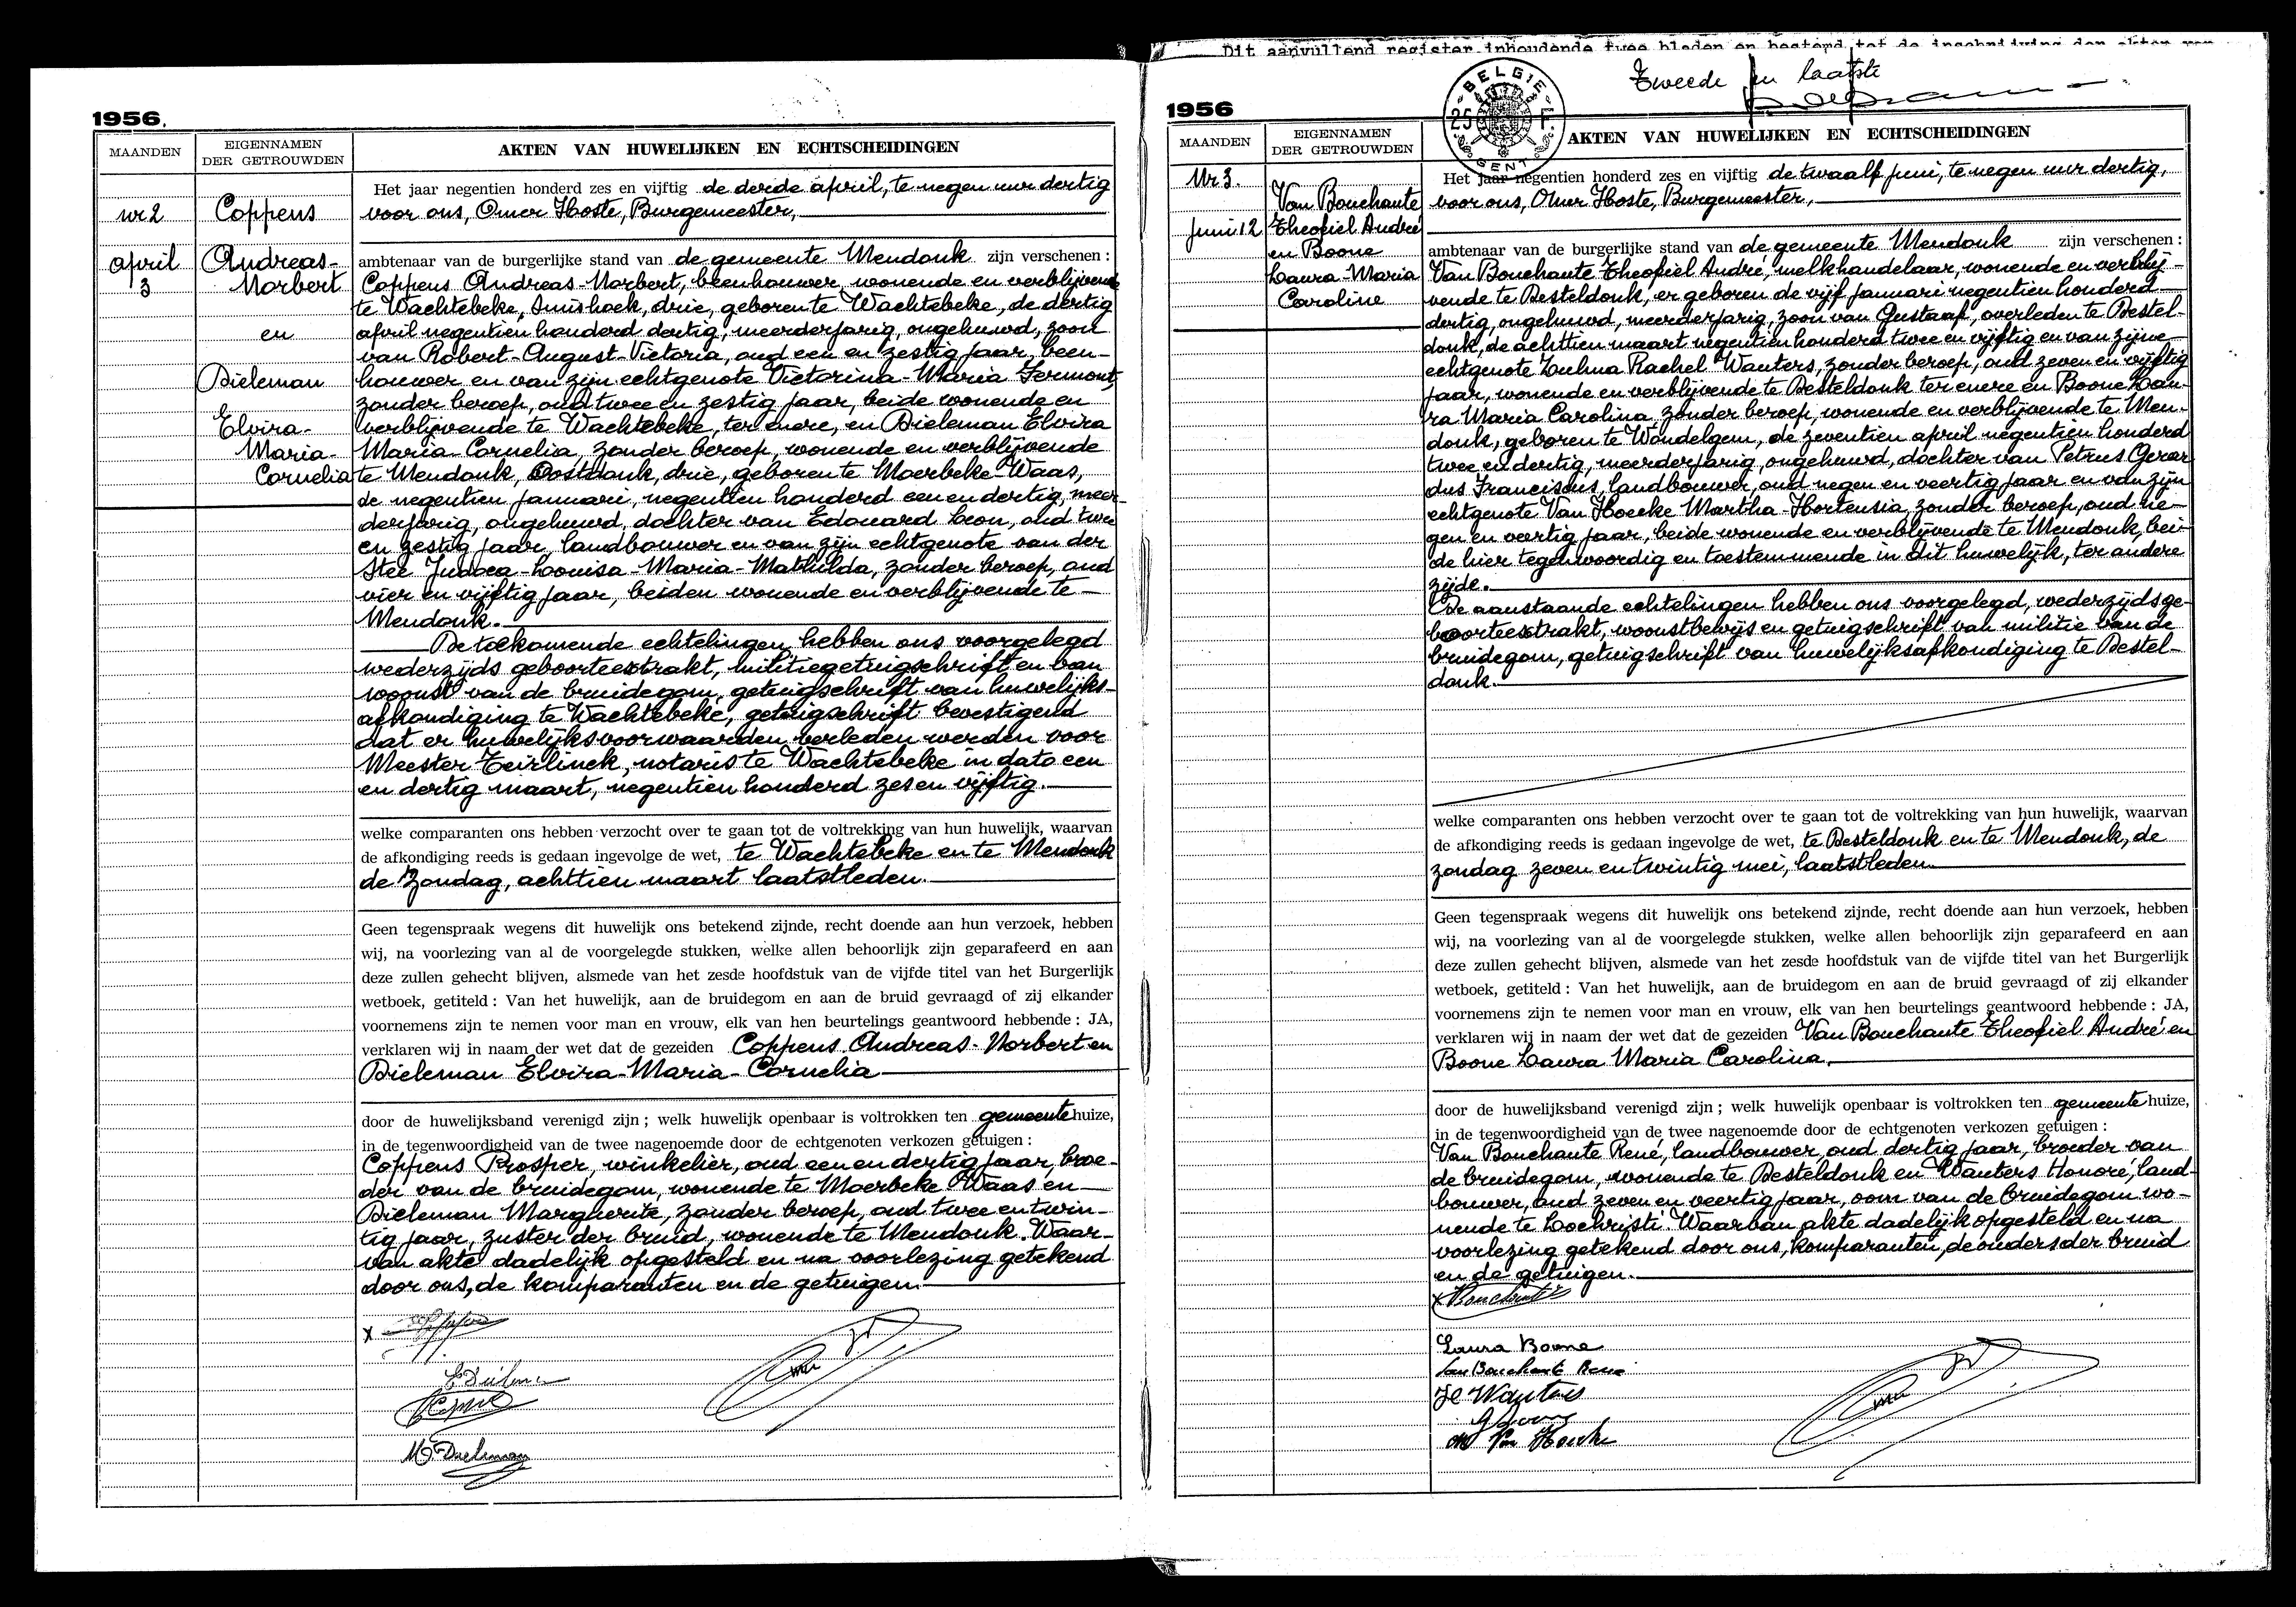 1956.
MAANDEN
EIGENNAMEN
DER GETROUWDEN
AKTEN VAN HUWELIJKEN EN ECHTSCHEIDINGEN
nr 2
april
3
Coppens
Andreas-
Norbert
en
Dieleman
Elvira-
Maria-
Cornelia
Het jaar negentien honderd zes en vijftig de derde april, te negen uur dertig
voor ons, Omer Hoste, Burgemeester,
ambtenaar van de burgerlijke stand van de gemeente Mendonk zijn verschenen :
Coppens Andreas-Norbert, beenhouwer, wonende en verblijvende
te Wachtebeke, Smishoek, drie, geboren te Wachtebeke, de dertig
april negentien honderd dertig, meerderjarig, ongehuwd, zoon
van Robert-August-Victoria, oud een en zestig jaar, been-
houwer en van zijn echtgenote Victorina-Maria Fermont,
zonder beroep, oud twee en zestig jaar, beide wonende en
verblijvende te Wachtebeke, ter enere, en Dieleman Elvira
Maria-Cornelia, zonder beroep, wonende en verblijvende
te Mendonk, Oostdonk, drie, geboren te Moerbeke-Waas,
de negentien januari, negentien honderd een en dertig, meer-
derjarig, ongehuwd, dochter van Edouard Leon, oud twee
en zestig jaar, landbouwer en van zijn echtgenote van der
Stee Judoca-Louisa-Maria-Mathilda, zonder beroep, oud
vier en vijftig jaar, beiden wonende en verblijvende te
Mendonk.
De toekomende echtelingen hebben ons voorgelegd
wederzijds geboorteextrakt, militiegetuigschrift en van
woonst van de bruidegom, getuigschrift van huwelijks-
afkondiging te Wachtebeke, getuigschrift bevestigend
dat er huwelijksvoorwaarden verleden werden voor
Meester Teirlinck, notaris te Wachtebeke in dato een
en dertig maart, negentien honderd zes en vijftig.
welke comparanten ons hebben verzocht over te gaan tot de voltrekking van hun huwelijk, waarvan
de afkondiging reeds is gedaan ingevolge de wet, te Wachtebeke en te Mendonk
de zondag, achttien maart laatstleden.
Geen tegenspraak wegens dit huwelijk ons betekend zijnde, recht doende aan hun verzoek, hebben
wij, na voorlezing van al de voorgelegde stukken, welke allen behoorlijk zijn geparafeerd en aan
deze zullen gehecht blijven, alsmede van het zesde hoofdstuk van de vijfde titel van het Burgerlijk
wetboek, getiteld : Van het huwelijk, aan de bruidegom en aan de bruid gevraagd of zij elkander
voornemens zijn te nemen voor man en vrouw, elk van hen beurtelings geantwoord hebbende : JA,
verklaren wij in naam der wet dat de gezeiden Coppens Andreas-Norbert en
Dieleman Elvira-Maria-Cornelia
door de huwelijksband verenigd zijn ; welk huwelijk openbaar is voltrokken ten gemeente huize,
in de tegenwoordigheid van de twee nagenoemde door de echtgenoten verkozen getuigen :
Coppens Prosper, winkelier, oud een en dertig jaar, broe-
der van de bruidegom, wonende te Moerbeke Waas en
Dieleman Marguerite, zonder beroep, oud twee en twin-
tig jaar, zuster der bruid, wonende te Mendonk. Waar-
van akte dadelijk opgesteld en na voorlezing getekend
door ons, de komparanten en de getuigen.
x
M. Dieleman
Dit aanvullend register inhoudende twee bladen en bestemd tot de inschrijving der akten van
Tweede en laatste
1956
BELGIE
25 F.
GENT
MAANDEN
EIGENNAMEN
DER GETROUWDEN
AKTEN VAN HUWELIJKEN EN ECHTSCHEIDINGEN
Nr 3.
Juni 12
Van Bouchaute
Theofiel André
en Boone
Laura-Maria
Caroline
Het jaar negentien honderd zes en vijftig de twaalf juni, te negen uur dertig,
voor ons, Omer Hoste, Burgemeester,
ambtenaar van de burgerlijke stand van de gemeente Mendonk zijn verschenen :
Van Bouchaute Theofiel André, melkhandelaar, wonende en verblij-
vende te Desteldonk, er geboren de vijf januari negentien honderd
dertig, ongehuwd, meerderjarig, zoon van Gustaaf, overleden te Destel-
donk, de achttien maart negentien honderd twee en vijftig en van zijne
echtgenote Zulma Rachel Wauters, zonder beroep, oud zeven en vijftig
jaar, wonende en verblijvende te Desteldonk ter enere en Boone Lau-
ra Maria Carolina, zonder beroep, wonende en verblijvende te Men-
donk, geboren te Wondelgem, de zeventien april negentien honderd
twee en dertig, meerderjarig, ongehuwd, dochter van Petrus Gerar
dus Franciscus, landbouwer, oud negen en veertig jaar en van zijn
echtgenote Van Hoecke Martha-Hortensia, zonder beroep, oud ne-
gen en veertig jaar, beide wonende en verblijvende te Mendonk, bei-
de hier tegenwoordig en toestemmende in dit huwelijk, ter andere
zijde.
De aanstaande echtelingen hebben ons voorgelegd, wederzijds ge-
boorteextrakt, woonstbewijs en getuigschrift van militie van de
bruidegom, getuigschrift van huwelijksafkondiging te Destel-
donk.
welke comparanten ons hebben verzocht over te gaan tot de voltrekking van hun huwelijk, waarvan
de afkondiging reeds is gedaan ingevolge de wet, te Desteldonk en te Mendonk, de
zondag zeven en twintig mei, laatstleden.
Geen tegenspraak wegens dit huwelijk ons betekend zijnde, recht doende aan hun verzoek, hebben
wij, na voorlezing van al de voorgelegde stukken, welke allen behoorlijk zijn geparafeerd en aan
deze zullen gehecht blijven, alsmede van het zesde hoofdstuk van de vijfde titel van het Burgerlijk
wetboek, getiteld : Van het huwelijk, aan de bruidegom en aan de bruid gevraagd of zij elkander
voornemens zijn te nemen voor man en vrouw, elk van hen beurtelings geantwoord hebbende : JA,
verklaren wij in naam der wet dat de gezeiden Van Bouchaute Theofiel André en
Boone Laura Maria Carolina.
door de huwelijksband verenigd zijn ; welk huwelijk openbaar is voltrokken ten gemeente huize,
in de tegenwoordigheid van de twee nagenoemde door de echtgenoten verkozen getuigen :
Van Bouchaute René, landbouwer, oud dertig jaar, broeder van
de bruidegom, wonende te Desteldonk en Wauters Honoré, land-
bouwer, oud zeven en veertig jaar, oom van de bruidegom wo-
nende te Lochristi. Waarvan akte dadelijk opgesteld en na
voorlezing getekend door ons, komparanten, de ouders der bruid
en de getuigen.
x Bouchaute
Laura Boone
Van Bouchaute René
H Wauters
M Van Hoecke